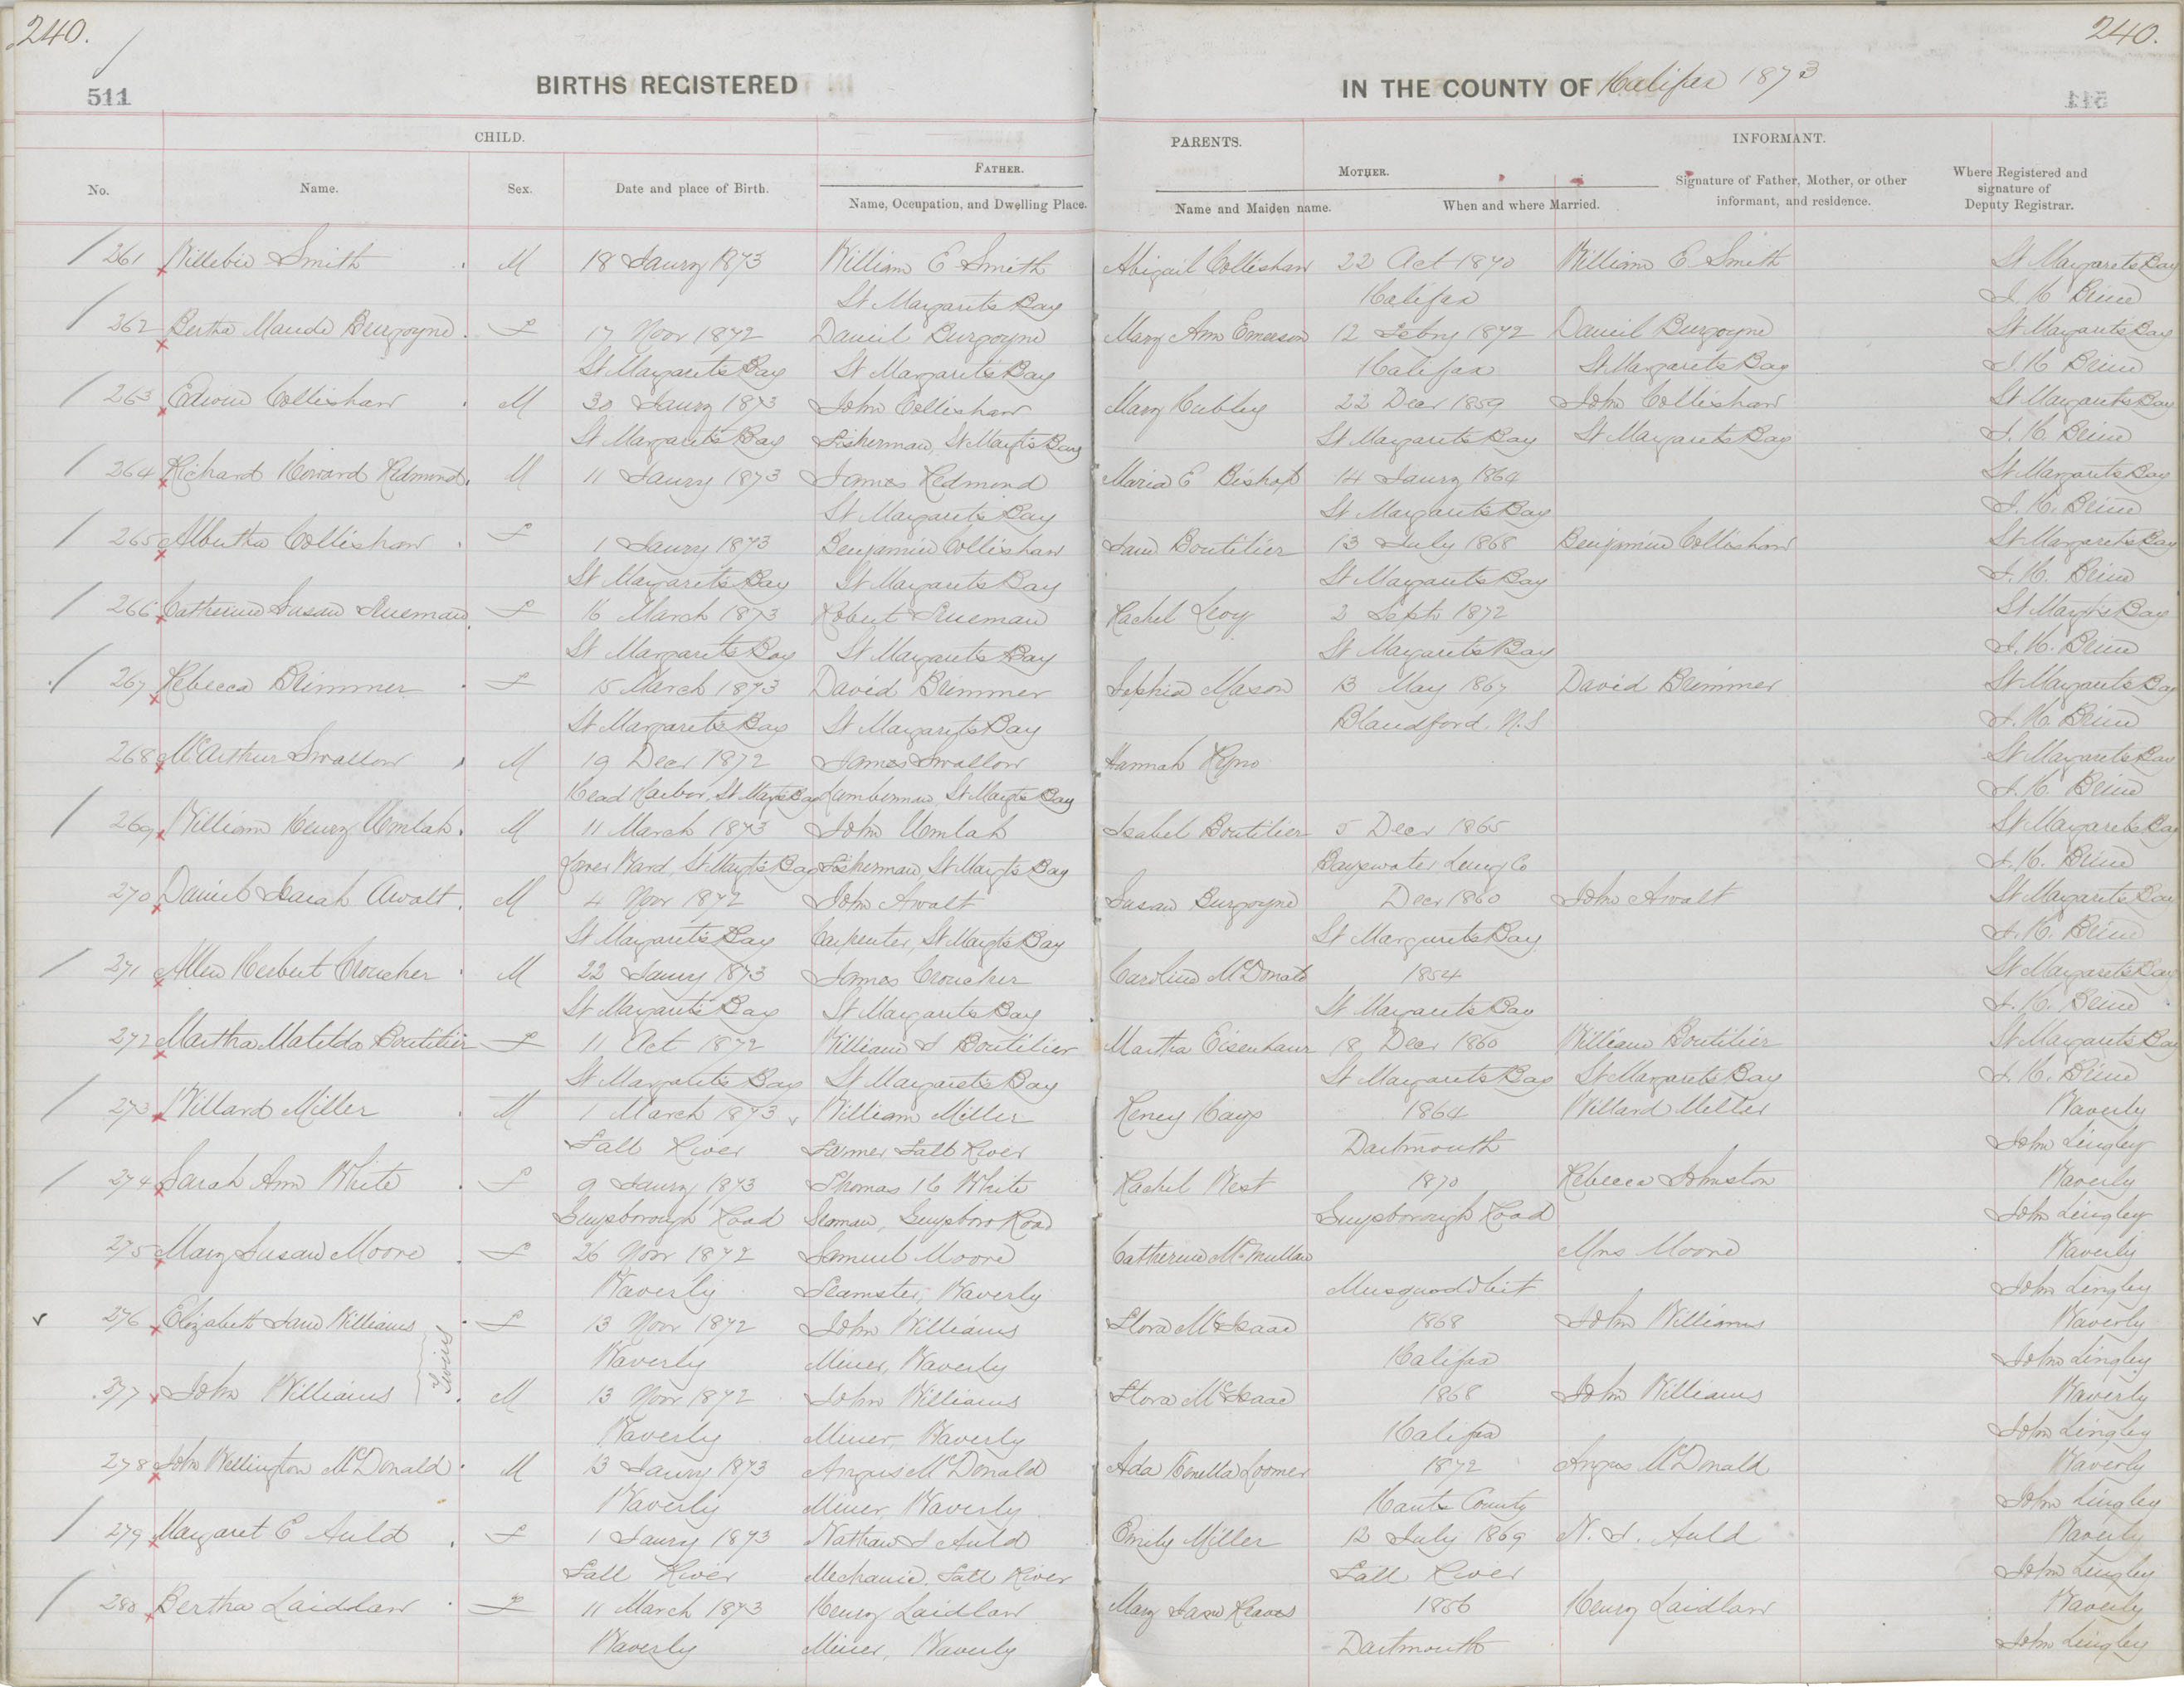 240.
240.
511
BIRTHS REGISTERED
IN THE COUNTY OF Halifax 1873
CHILD.
PARENTS.
INFORMANT.
No.
Name.
Sex.
Date and place of Birth.
FATHER.
Name, Occupation, and Dwelling Place.
MOTHER.
Name and Maiden name.
When and where Married.
Signature of Father, Mother, or other informant, and residence.
Where Registered and signature of Deputy Registrar.
261 Smith M 18 Jaury 1873 William E Smith Abigail Collishaw 22 Oct 1870 William E Smith St Margarets Bay
St Margarets Bay Halifax
262 Bertha Maude Burgoyne F 17 Novr 1872 Daniel Burgoyne Mary Ann Emerson 12 Febry 1872 Daniel Burgoyne St Margarets Bay
St Margarets Bay St Margarets Bay Halifax St Margarets Bay
263 Edwin Collishaw M 30 Jaury 1873 John Collishaw Mary Hubley 22 Decr 1859 John Collishaw St Margarets Bay
St Margarets Bay Fisherman, St Margts Bay St Margarets Bay St Margarets Bay
264 Richard Howard Redmond M 11 Jaury 1873 James Redmond Maria E Bishop 14 Jaury 1864 St Margarets Bay
St Margarets Bay St Margarets Bay
265 Albertha Collishaw F 1 Jaury 1873 Benjamin Collishaw Jane Boutilier 13 July 1868 Benjamin Collishaw St Margarets Bay
St Margarets Bay St Margarets Bay St Margarets Bay
266 Catherine Susan Trueman F 16 March 1873 Robert Trueman Rachel Levy 2 Septr 1872 St Margts Bay
St Margarets Bay St Margarets Bay St Margarets Bay
267 Rebecca Brimmer F 15 March 1873 David Brimmer Sophia Mason 13 May 1867 David Brimmer St Margarets Bay
St Margarets Bay St Margarets Bay Blandford, N.S
268 McArthur Swallow M 19 Decr 1872 James Swallow Hannah St Margarets Bay
Head Harbor, St Margts Bay Lumberman, St Margts Bay
269 William Henry Umlah M 11 March 1873 John Umlah Isabel Boutilier 5 Decr 1865 St Margarets Bay
Lower Ward, St Margts Bay Fisherman, St Margts Bay Bayswater Luny Co
270 Daniel Isaiah Awalt M 4 Novr 1872 John Awalt Susan Burgoyne Decr 1860 John Awalt St Margarets Bay
St Margarets Bay Carpenter, St Margts Bay St Margarets Bay
271 Allen Herbert Croucher M 22 Jaury 1873 James Croucher Caroline McDonald 1854 St Margarets Bay
St Margarets Bay St Margarets Bay St Margarets Bay
272 Martha Matilda Boutilier F 11 Oct 1872 William J Boutilier Martha Eisenhaur 18 Decr 1860 William Boutilier St Margarets Bay
St Margarets Bay St Margarets Bay St Margarets Bay St Margarets Bay
273 Willard Miller M 1 March 1873 William Miller Hays 1864 Willard Miller Waverly
Fall River Farmer Fall River Dartmouth John Lingley
274 Sarah Ann White F 9 Jaury 1873 Thomas H White Rachel West 1870 Rebecca Johnston Waverly
Guysborough Road Seaman, Guysboro Road Guysborough Road John Lingley
275 Mary Susan Moore F 26 Novr 1872 Samuel Moore Catherine McMullan Mrs Moore Waverly
Waverly Teamster, Waverly Musquodobeit John Lingley
276 Elizabeth Jane Williams F 13 Novr 1872 John Williams Flora McIsaac 1868 John Williams Waverly
Twins
Waverly Miner, Waverly Halifax John Lingley
277 John Williams M 13 Novr 1872 John Williams Flora McIsaac 1868 John Williams Waverly
Waverly Miner, Waverly Halifax John Lingley
278 John Wellington McDonald M 13 Jaury 1873 Angus McDonald Ada Loomer 1872 Angus McDonald Waverly
Waverly Miner, Waverly Hants County John Lingley
279 Margaret E Auld F 1 Jaury 1873 Nathan J Auld Emily Miller 12 July 1869 N. J. Auld Waverly
Fall River Mechanic, Fall River Fall River John Lingley
280 Bertha Laidlaw F 11 March 1873 Henry Laidlaw Mary Jane 1856 Henry Laidlaw Waverly
Waverly Miner, Waverly Dartmouth John Lingley